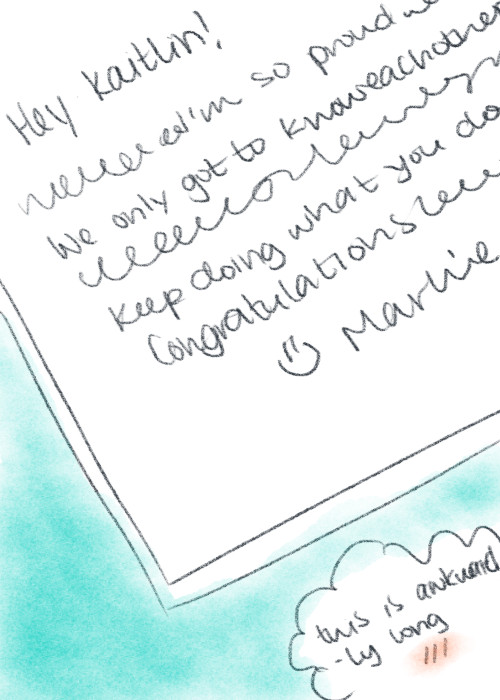 Hey Kaitlin!
I'm so proud
We only got to know eachother
Keep doing what you do
Congratulations
Marlie
this is awkward
-ly long